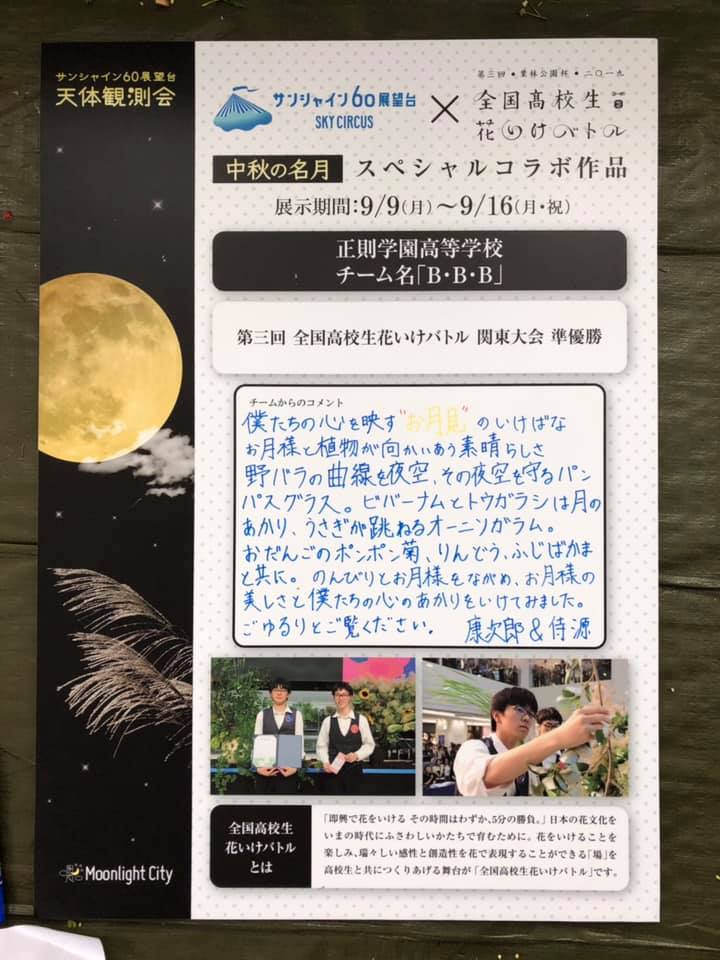 サンシャイン60展望台
天体観測会
サンシャイン60展望台
SKY CIRCUS
×
第三回・栗林公園杯・二〇一九
全国高校生
花いけバトル
中秋の名月 スペシャルコラボ作品
展示期間:9/9(月)~9/16(月・祝)
正則学園高等学校
チーム名「B・B・B」
第三回 全国高校生花いけバトル 関東大会 準優勝
チームからのコメント
僕たちの心を映す"お月見"のいけばな
お月様と植物が向かいあう素晴らしさ
野バラの曲線を夜空、その夜空を守るパン
パスグラス。ビバーナムとトウガラシは月の
あかり、うさぎが跳ねるオーニソガラム。
おだんごのポンポン菊、りんどう、ふじばかま
と共に。のんびりとお月様をながめ、お月様の
美しさと僕たちの心のあかりをいけてみました。
ごゆるりとご覧ください. 康次郎&侍源
全国高校生
花いけバトル
とは
「即興で花をいける その時間はわずか、5分の勝負。」日本の花文化を
いまの時代にふさわしいかたちで育むために。花をいけることを
楽しみ、瑞々しい感性と創造性を花で表現することができる「場」を
高校生と共につくりあげる舞台が「全国高校生花いけバトル」です。
Moonlight City